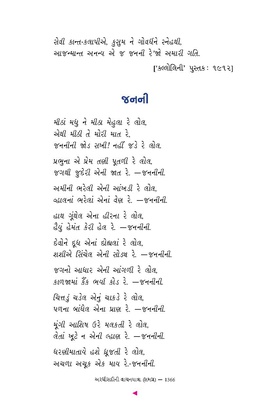 સેવી કાન્ત-કલાપીએ, કુસુમ ને ગોવર્ધને સ્નેહથી,
આજન્માન્ત અનન્ય એ જ જનની રે'જો અમારી ગતિ.
['કલ્લોલિની' પુસ્તક: ૧૯૧૨]
જનની
મીઠાં મધુ ને મીઠા મેહુલા રે લોલ,
એથી મીઠી તે મોરી માત રે,
જનનીની જોડ સખી! નહીં જડે રે લોલ.
પ્રભુના એ પ્રેમ તણી પૂતળી રે લોલ,
જગથી જુદેરી એની જાત રે. —જનનીની.
અમીની ભરેલી એની આંખડી રે લોલ,
વ્હાલનાં ભરેલાં એનાં વેણ રે. —જનનીની.
હાથ ગૂંથેલ એના હીરના રે લોલ,
હૈયું હેમંત કેરી હેલ રે. —જનનીની.
દેવોને દૂધ એનાં દોહ્યલાં રે લોલ,
શશીએ સિંચેલ એની સોડ્ય રે. —જનનીની.
જગનો આધાર એની આંગળી રે લોલ,
કાળજામાં કૈંક ભર્યા કોડ રે. —જનનીની.
ચિત્તડું ચડેલ એનું ચાકડે રે લોલ,
પળના બાંધેલ એના પ્રાણ રે. —જનનીની.
મૂંગી આશિષ ઉરે મલકતી રે લોલ,
લેતાં ખૂટે ન એની લ્હાણ રે. —જનનીની.
ધરણીમાતાયે હશે ધ્રૂજતી રે લોલ,
અચળા અચૂક એક માય રે.-જનનીની.